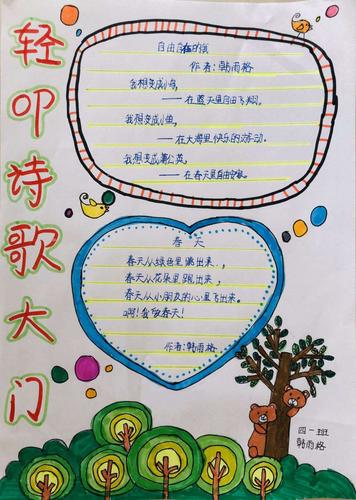 轻叩诗歌大门
自由自在的我
作者:韩雨格
我想变成小鸟,
——在蓝天里自由飞翔。
我想变成小鱼,
——在大海里快乐的游动。
我想变成蒲公英,
——在春天里自由
春天
春天从绿色里跳出来,
春天从花朵里跑出来,
春天从小朋友的心里飞出来。
啊!我 春天!
作者:韩雨格
四一班
韩雨格